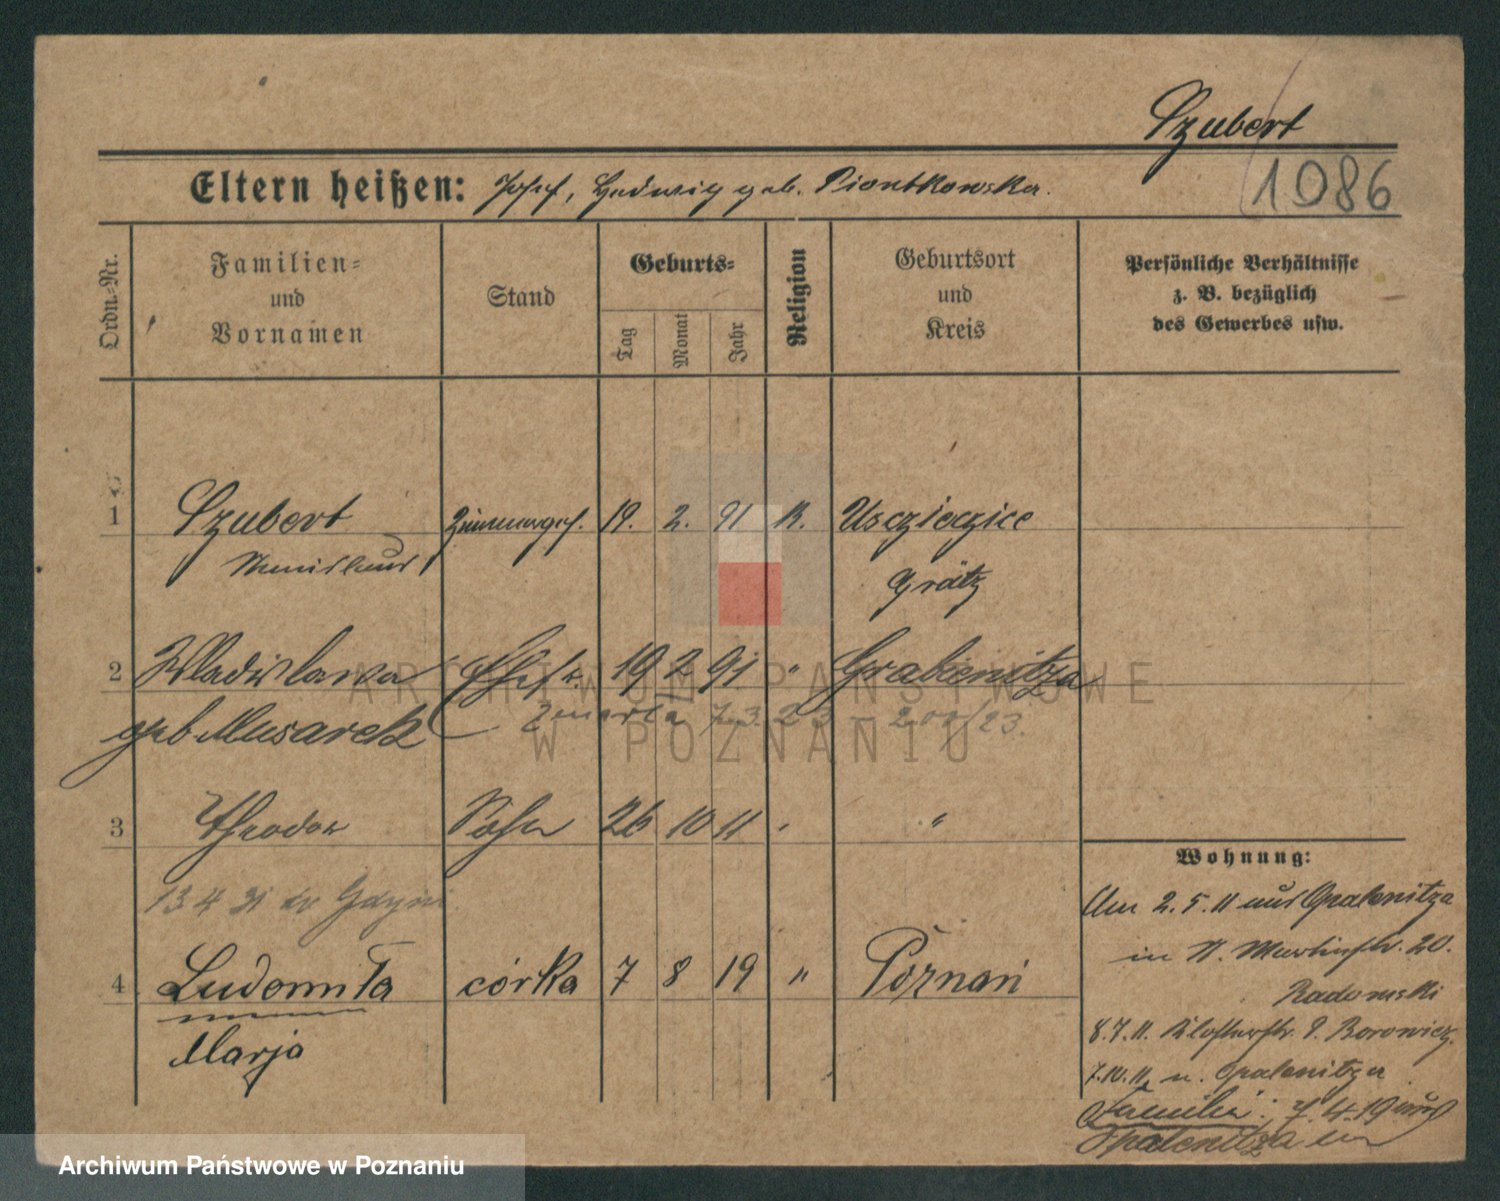 Szubert
1086
Eltern heißen: Josef, Hedwig geb. Piontkowska.
Ordn.-Nr.
Familien- und Vornamen
Stand
Geburts-
Tag
Monat
Jahr
Religion
Geburtsort und Kreis
Persönliche Verhältnisse z. B. bezüglich des Gewerbes usw.
1 Szubert Zimmerges. 19. 2. 91 K. Usczieczice
Stanislaus Grätz
2 Wladislawa Ehefr. 19 2 91 " Grabenitza
geb Musarek zmarła 7.3.23 - 209/23.
3 Theodor Sohn 26 10 11 " "
13 4 31 do Gdyni
4 Ludomiła córka 7 8 19 " Poznań
Marja
Wohnung:
Am 2.5.11 aus Opalenitza
in St. Martinstr. 20.
Radomski
8.7.11. Klosterstr. 9. Borowicz.
7.10.11. n. Opalenitza
Familie: 7.4.19 aus
Opalenitza
ARCHIWUM PAŃSTWOWE
W POZNANIU
Archiwum Państwowe w Poznaniu